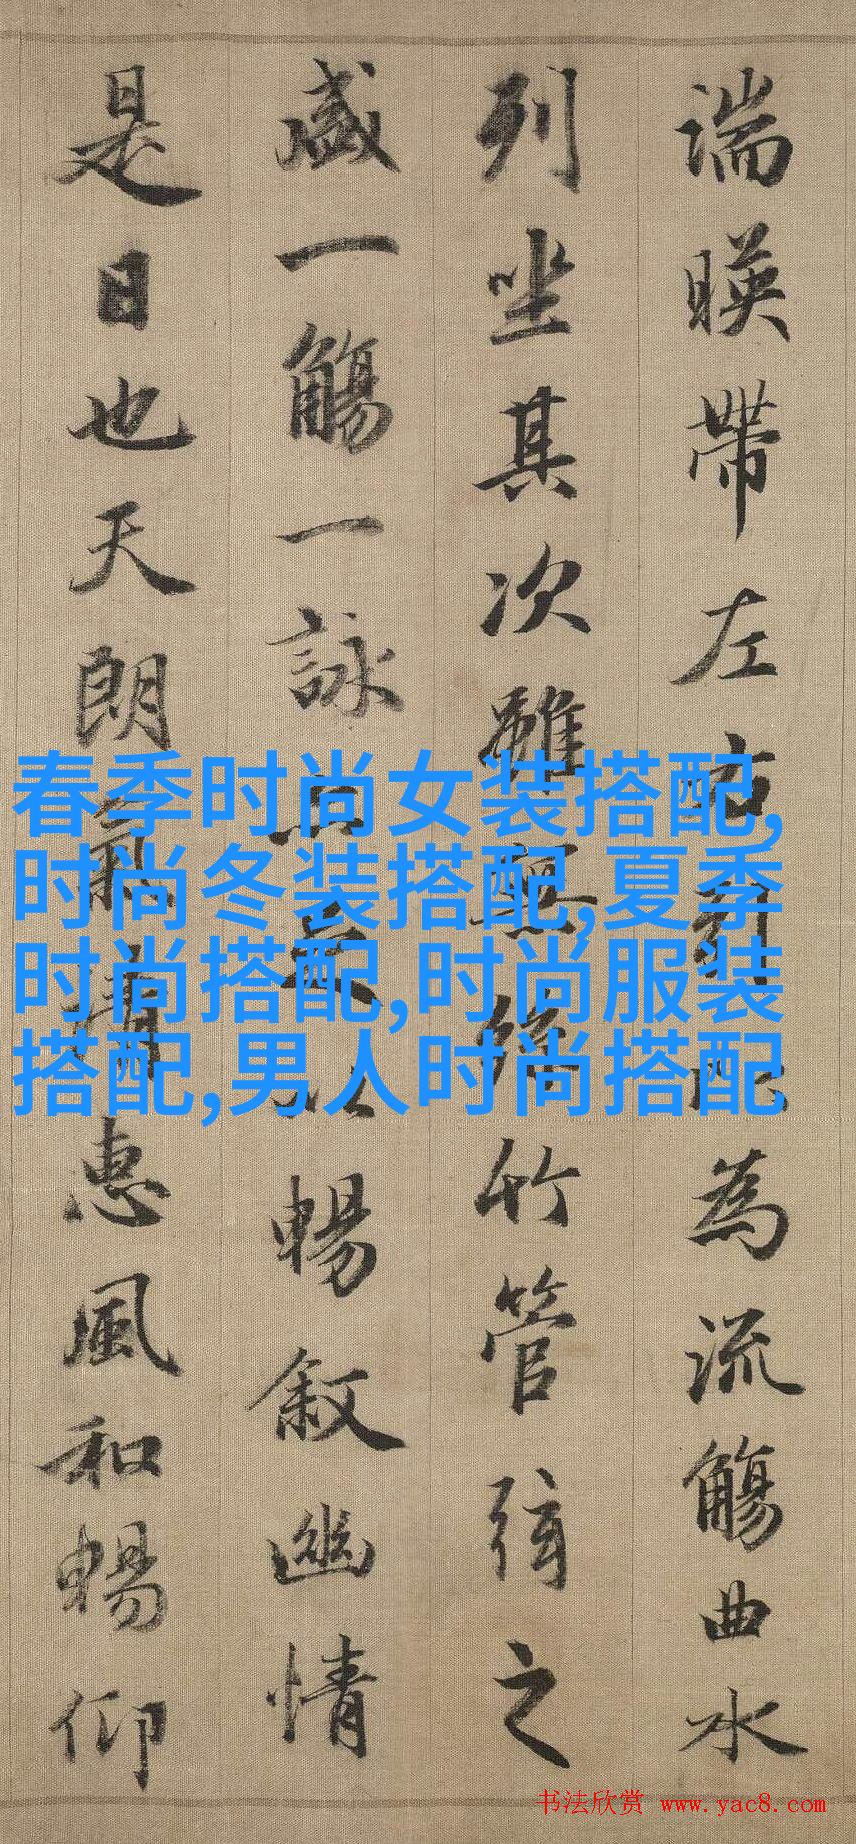 湍暎帶左右引以為流觴曲水
列坐其次雖無絲竹管弦之
盛一觴一詠亦足以暢敘幽情
是日也天朗氣清惠風和暢仰
春季时尚女装搭配,
时尚冬装搭配,夏季
时尚搭配,时尚服装
搭配,男人时尚搭配
书法欣赏 www.yac8.com